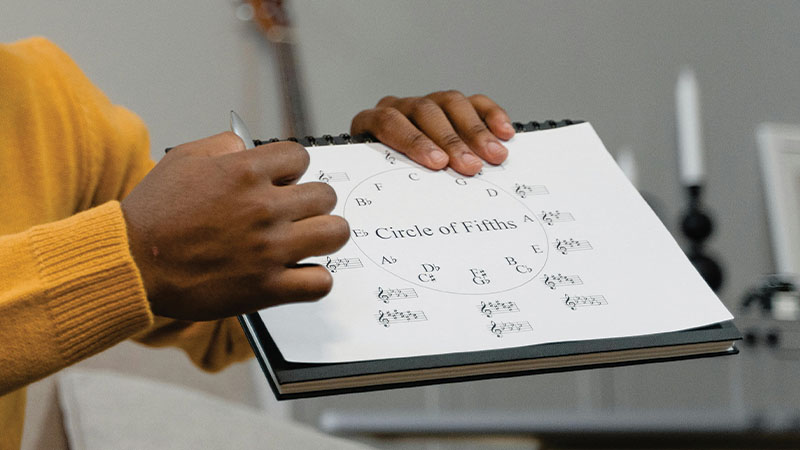 C
F G
B♭ D
E♭ Circle of Fifths A
A♭ E
D♭ F♯ B
C♯ G♭ C♭